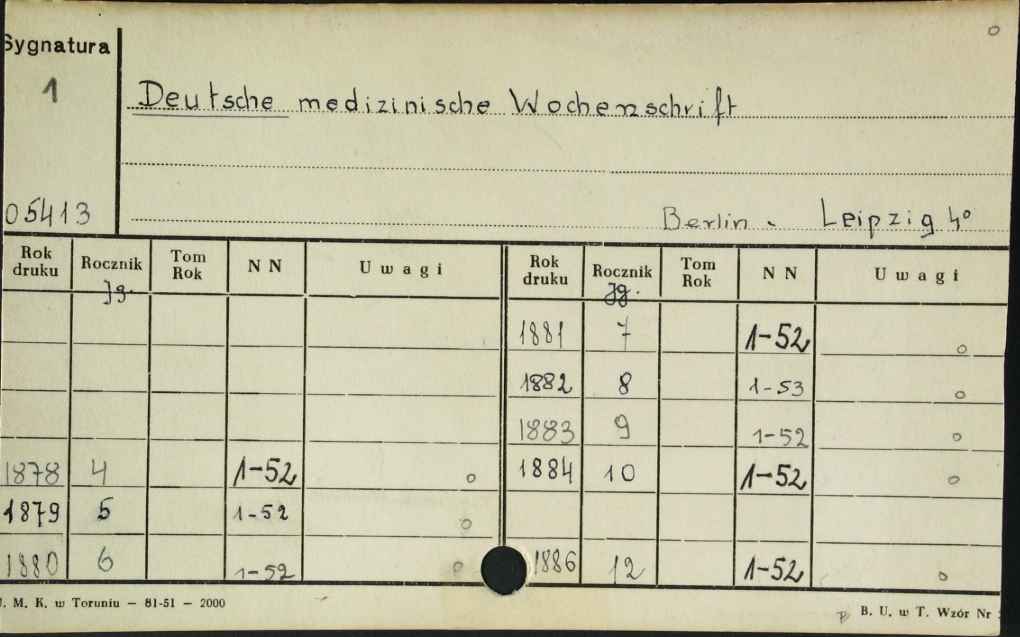 Sygnatura
1
Deutsche medizinische Wochenschrift
05413
Berlin. Leipzig 4°
Rok druku Rocznik Tom Rok N N Uwagi Rok druku Rocznik Tom Rok N N Uwagi
Jg. Jg.
1881 7 1-52 o
1882 8 1-53 o
1883 9 1-52 o
1878 4 1-52 o 1884 10 1-52 o
1879 5 1-52 o
1880 6 1-52 o 1886 12 1-52 o
J. M. K. w Toruniu – 81-51 – 2000
B. U. w T. Wzór Nr